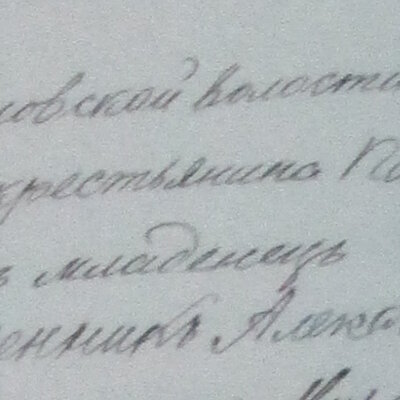 ловской волости
крестьянина По
ъ младенецъ
енникъ Алекс